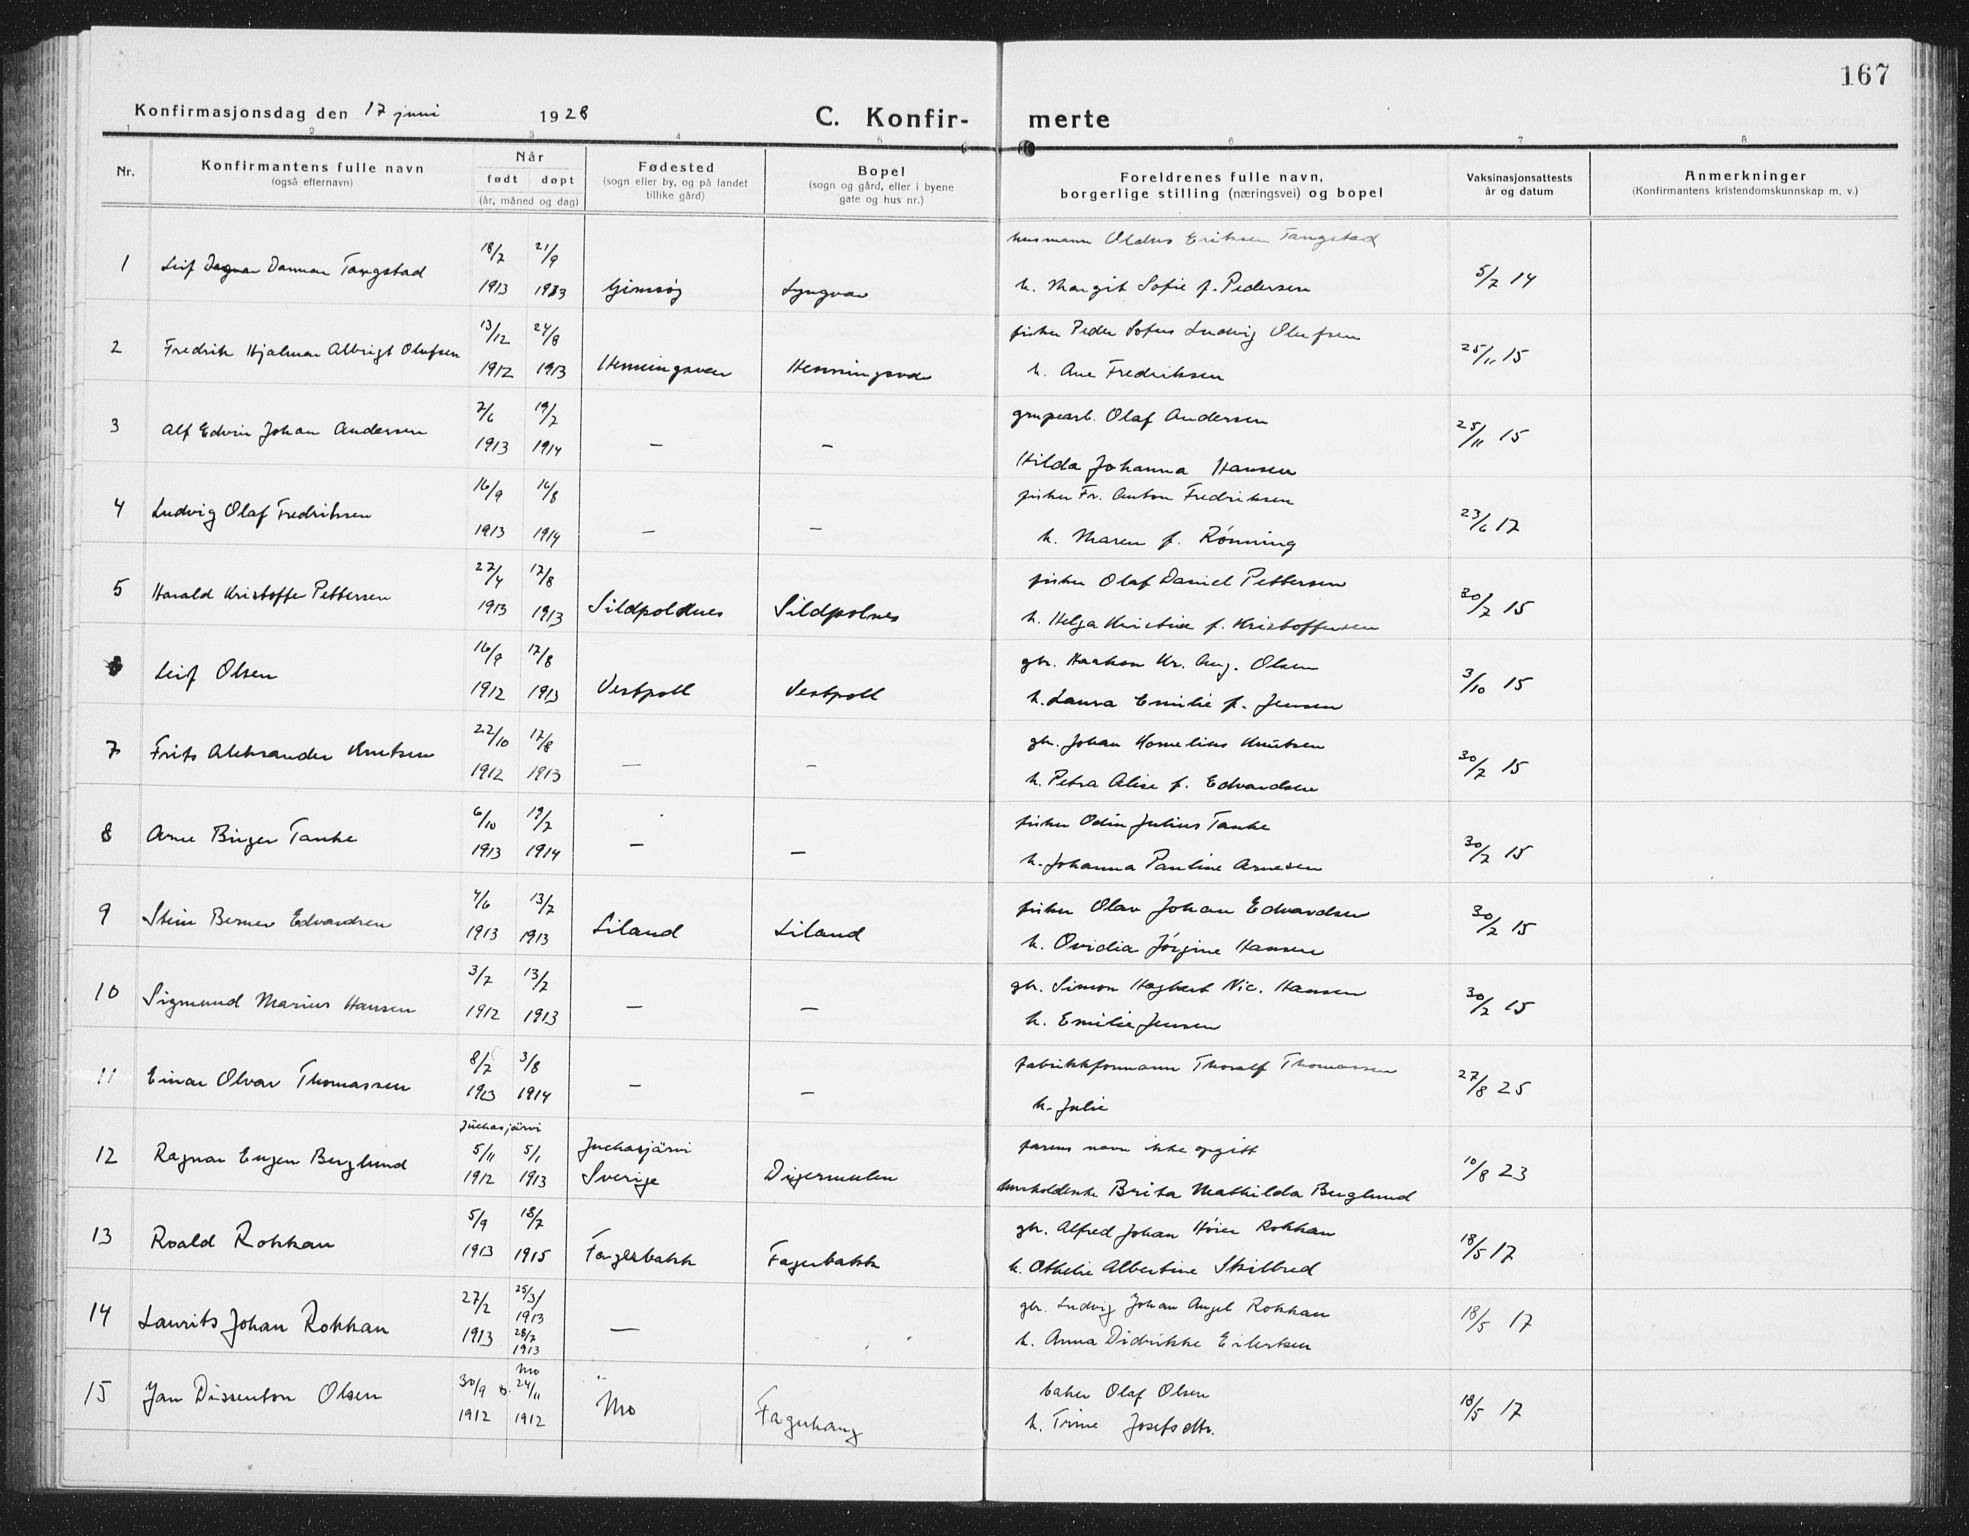 167
Konfirmasjonsdag den 17 juni 1928
C. Konfir- merte
1 2 3 4 5 6 7 8
Nr.
Konfirmantens fulle navn
(også efternavn)
Når
født døpt
(år, måned og dag)
Fødested
(sogn eller by, og på landet
tillike gård)
Bopel
(sogn og gård, eller i byene
gate og hus nr.)
Foreldrenes fulle navn,
borgerlige stilling (næringsvei) og bopel
Vaksinasjonsattests
år og datum
Anmerkninger
(Konfirmantens kristendomskunnskap m. v.)
husmann Oldus Eriksen Tangstad
1 Leif Dagnar Tangstad 18/7 1913 21/9 1913 Gimsøy Lyngvær 5/7 14
h. Margit Sofie f. Pedersen
fisker Peder Sofus Ludvig Olufsen
2 Fredrik Hjalmar Albrigt Olufsen 13/12 1912 24/8 1913 Henningsvær 25/11 15
h. Ane Fredriksen
grupearb. Olaf Andersen
3 Alf Edvin Johan Andersen 7/6 1913 19/7 1914 — — 25/11 15
Hilda Johanna Hansen
fisker Fr. Anton Fredriksen
4 Ludvig Olaf Fredriksen 16/9 1913 16/8 1914 — — 23/6 17
h. Maren f. Rønning
fisker Olaf Daniel Pettersen
5 Harald Kristoffer Pettersen 27/4 1913 17/8 1913 Sildpoldnes Sildpolnes 30/7 15
h. Helga Kristine f. Kristoffersen
gbr. Haakon Kr. Aug. Olsen
6 Leif Olsen 16/9 1912 17/8 1913 Vestpoll Vestpoll 3/10 15
h. Laura Emilie f. Jensen
gbr. Johan Kornelius Knutsen
7 Frits Aleksander Knutsen 22/10 1912 17/8 1913 — — 30/7 15
h. Petra Alise f. Edvardsen
fisker Odin Julius Tanke
8 Arne Birger Tanke 6/10 1913 19/7 1914 — — 30/7 15
h. Johanna Pauline Arnesen
fisker Olav Johan Edvardsen
9 Stein Berner Edvardsen 4/6 1913 13/7 1913 Liland Liland 30/7 15
h. Ovidia Jørgine Hansen
gbr. Simon Hagbart Nic. Hansen
10 Sigmund Marius Hansen 3/7 1912 13/7 1913 — — 30/7 15
h. Emilie Jensen
fabrikkformann Thoralf Thomassen
11 Einar Olvar Thomassen 8/7 1913 3/8 1914 — — 27/8 25
h. Julie
Juchasjärvi
farens navn ikke opgitt
12 Ragnar Eugen Berglund 5/11 1912 5/1 1913 Juchasjärvi Sverige Digermulen 10/8 23
husholderske Brita Mathilda Berglund
gbr. Alfred Johan Høier Rokkan
13 Roald Rokkan 5/9 1913 18/7 1915 Fagerbakk Fagerbakk 18/5 17
h. Othelie Albertine Skilbred
gbr. Ludvig Johan Angel Rokkan
14 Laurits Johan Rokkan 27/2 1913 25/3 1913 28/7 1913 — 18/5 17
h. Anna Didrikke Eilertsen
Mo
baker Olaf Olsen
15 Jan Dissenton Olsen 30/9 1912 24/11 1912 Mo Fagerhaug 18/5 17
h. Trine Josefsdtr.